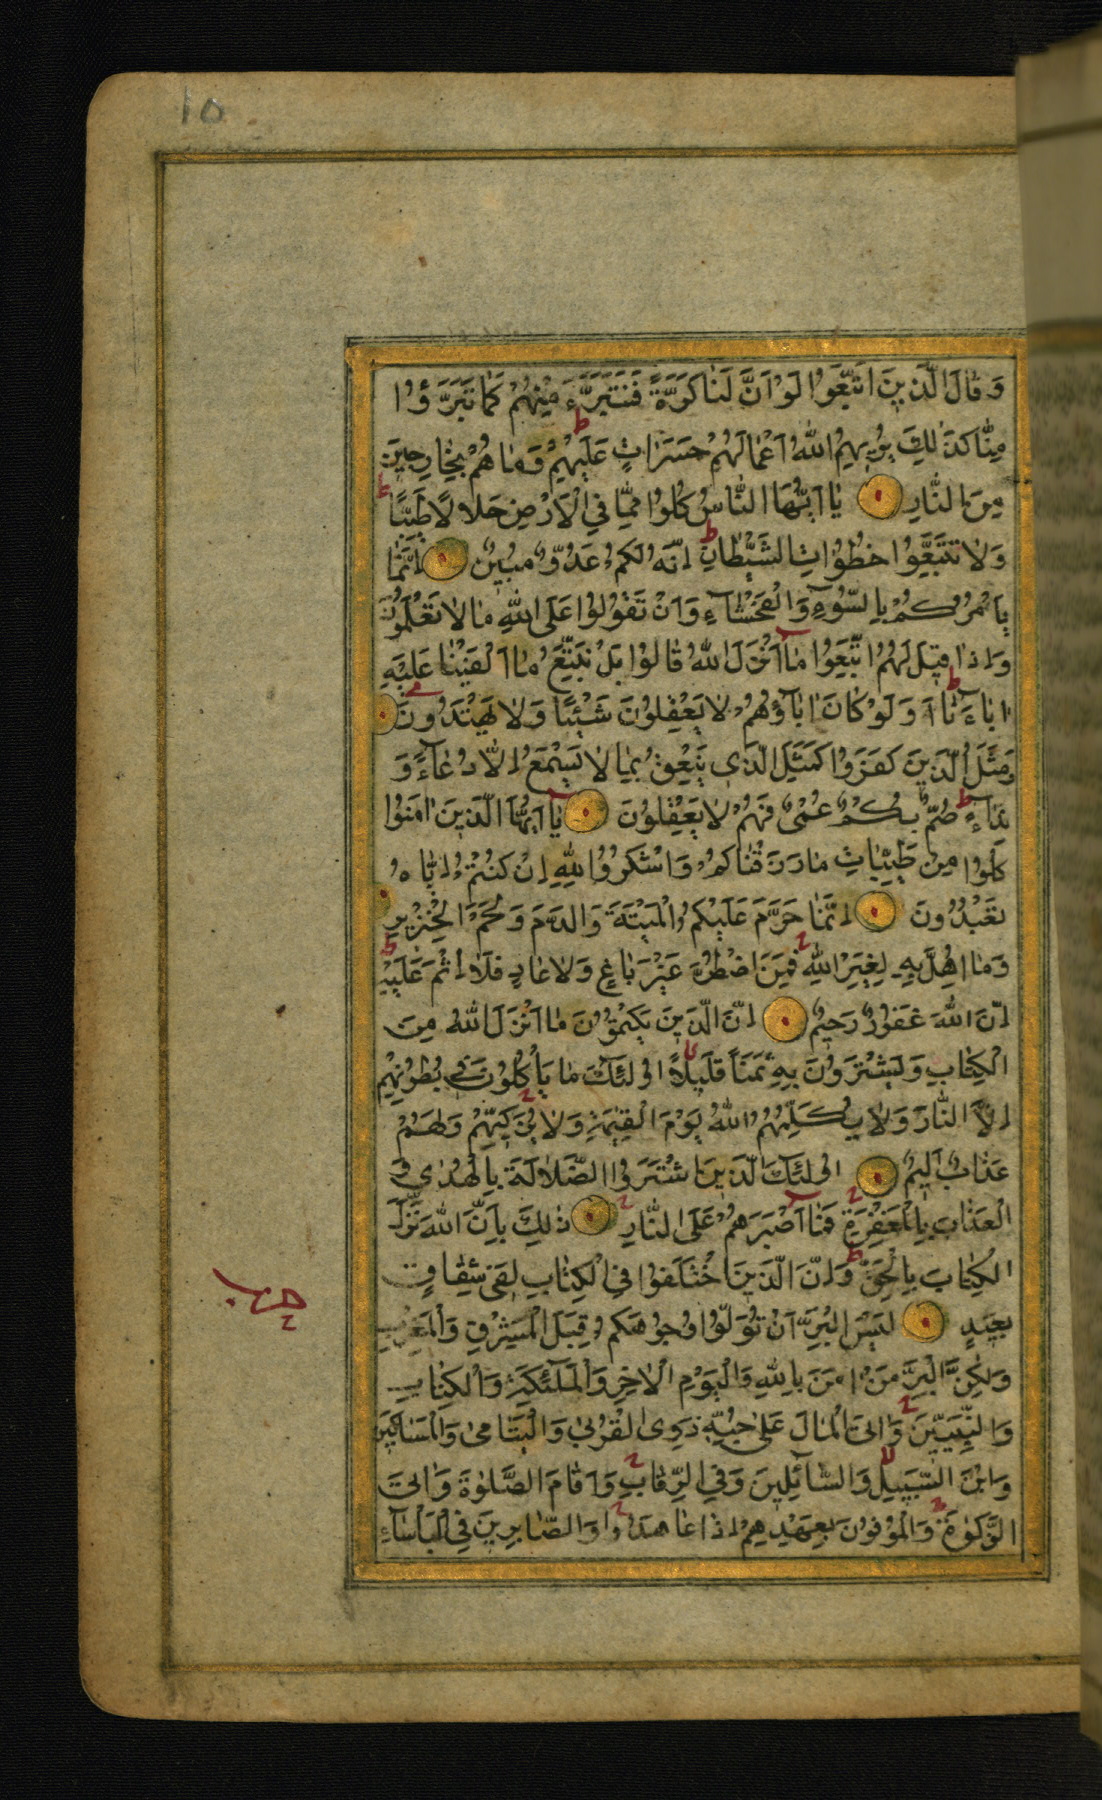 ١٥
وَقَالَ الَّذِينَ اتَّبَعُوا لَوْ اَنَّ لَنَا كَرَّةً فَنَتَبَرَّءَ مِنْهُمْ كَمَا تَبَرَّؤُا
مِنَّا كَذٰلِكَ يُرِيهِمُ اللّٰهُ اَعْمَالَهُمْ حَسَرَاتٍ عَلَيْهِمْ وَمَا هُمْ بِخَارِجِينَ
مِنَ النَّارِ يَا اَيُّهَا النَّاسُ كُلُوا مِمَّا فِي الْاَرْضِ حَلَالًا طَيِّبًا
وَلَا تَتَّبِعُوا خُطُوَاتِ الشَّيْطَانِ اِنَّهُ لَكُمْ عَدُوٌّ مُبِينٌ اِنَّمَا
يَاْمُرُكُمْ بِالسُّوءِ وَالْفَحْشَاءِ وَاَنْ تَقُولُوا عَلَى اللّٰهِ مَا لَا تَعْلَمُونَ
وَاِذَا قِيلَ لَهُمُ اتَّبِعُوا مَا اَنْزَلَ اللّٰهُ قَالُوا بَلْ نَتَّبِعُ مَا اَلْفَيْنَا عَلَيْهِ
اٰبَاءَنَا اَوَلَوْ كَانَ اٰبَاؤُهُمْ لَا يَعْقِلُونَ شَيْئًا وَلَا يَهْتَدُونَ
وَمَثَلُ الَّذِينَ كَفَرُوا كَمَثَلِ الَّذِي يَنْعِقُ بِمَا لَا يَسْمَعُ اِلَّا دُعَاءً وَ
نِدَاءً صُمٌّ بُكْمٌ عُمْيٌ فَهُمْ لَا يَعْقِلُونَ يَا اَيُّهَا الَّذِينَ اٰمَنُوا
كُلُوا مِنْ طَيِّبَاتِ مَا رَزَقْنَاكُمْ وَاشْكُرُوا لِلّٰهِ اِنْ كُنْتُمْ اِيَّاهُ
تَعْبُدُونَ اِنَّمَا حَرَّمَ عَلَيْكُمُ الْمَيْتَةَ وَالدَّمَ وَلَحْمَ الْخِنْزِيرِ
وَمَا اُهِلَّ بِهِ لِغَيْرِ اللّٰهِ فَمَنِ اضْطُرَّ غَيْرَ بَاغٍ وَلَا عَادٍ فَلَا اِثْمَ عَلَيْهِ
اِنَّ اللّٰهَ غَفُورٌ رَحِيمٌ اِنَّ الَّذِينَ يَكْتُمُونَ مَا اَنْزَلَ اللّٰهُ مِنَ
الْكِتَابِ وَيَشْتَرُونَ بِهِ ثَمَنًا قَلِيلًا اُولٰئِكَ مَا يَاْكُلُونَ فِي بُطُونِهِمْ
اِلَّا النَّارَ وَلَا يُكَلِّمُهُمُ اللّٰهُ يَوْمَ الْقِيٰمَةِ وَلَا يُزَكِّيهِمْ وَلَهُمْ
عَذَابٌ اَلِيمٌ اُولٰئِكَ الَّذِينَ اشْتَرَوُا الضَّلَالَةَ بِالْهُدٰى وَ
الْعَذَابَ بِالْمَغْفِرَةِ فَمَا اَصْبَرَهُمْ عَلَى النَّارِ ذٰلِكَ بِاَنَّ اللّٰهَ نَزَّلَ
الْكِتَابَ بِالْحَقِّ وَاِنَّ الَّذِينَ اخْتَلَفُوا فِي الْكِتَابِ لَفِي شِقَاقٍ
بَعِيدٍ لَيْسَ الْبِرَّ اَنْ تُوَلُّوا وُجُوهَكُمْ قِبَلَ الْمَشْرِقِ وَالْمَغْرِبِ
وَلٰكِنَّ الْبِرَّ مَنْ اٰمَنَ بِاللّٰهِ وَالْيَوْمِ الْاٰخِرِ وَالْمَلٰئِكَةِ وَالْكِتَابِ
وَالنَّبِيِّينَ وَاٰتَى الْمَالَ عَلٰى حُبِّهِ ذَوِي الْقُرْبٰى وَالْيَتَامٰى وَالْمَسَاكِينَ
وَابْنَ السَّبِيلِ وَالسَّائِلِينَ وَفِي الرِّقَابِ وَاَقَامَ الصَّلٰوةَ وَاٰتَى
الزَّكٰوةَ وَالْمُوفُونَ بِعَهْدِهِمْ اِذَا عَاهَدُوا وَالصَّابِرِينَ فِي الْبَأْسَاءِ
حزب